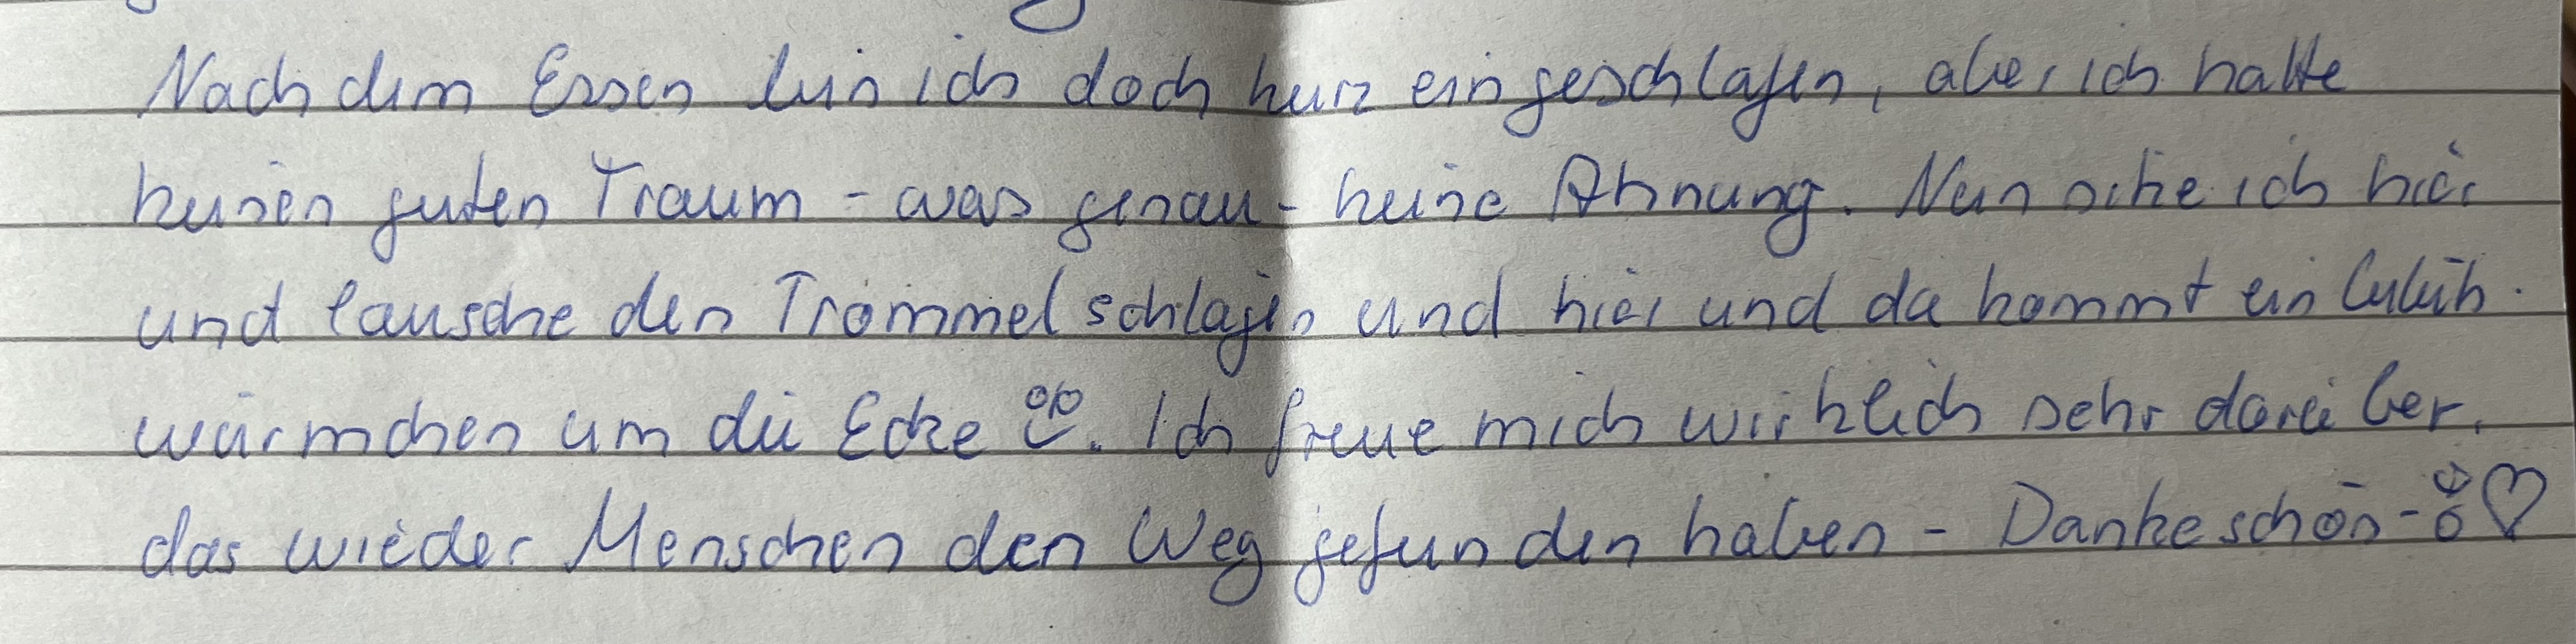 Nach dem Essen bin ich doch kurz eingeschlafen, aber ich hatte
keinen guten Traum - was genau - keine Ahnung. Nun sitze ich hier
und lausche den Trommelschlägen und hier und da kommt ein Glüh-
würmchen um die Ecke. Ich freue mich wirklich sehr darüber,
das wieder Menschen den Weg gefunden haben - Dankeschön - ♡